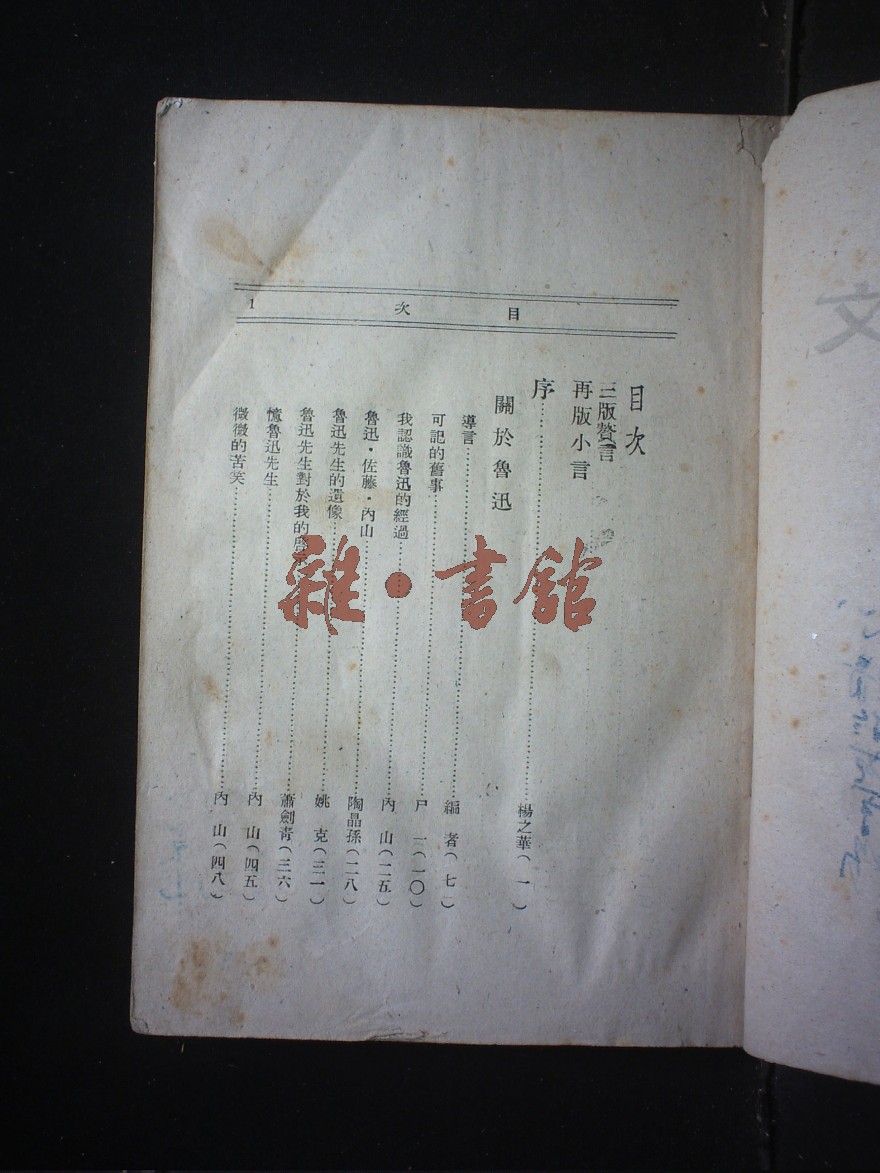 1 次 目
目次
三版贅言
再版小言
序 楊之華(一)
關於魯迅
導言 編者(七)
可記的舊事 尸一(一〇)
我認識魯迅的經過 內山(二五)
魯迅・佐藤・內山 陶晶孫(二八)
魯迅先生的遺像 姚克(三一)
魯迅先生對於我的啓示 蕭劍青(三六)
憶魯迅先生 內山(四五)
微微的苦笑 內山(四八)
雜・書館
文